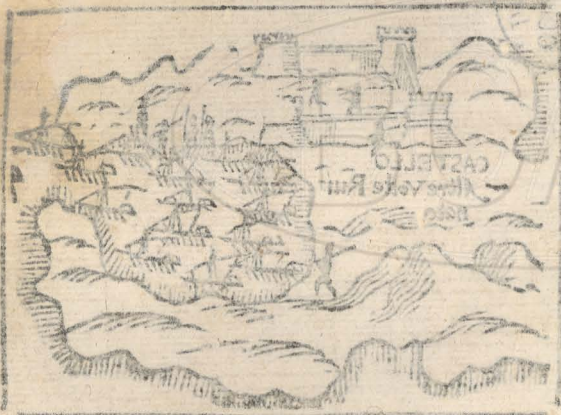 CASTELLO
Altre Volte Rui
nato